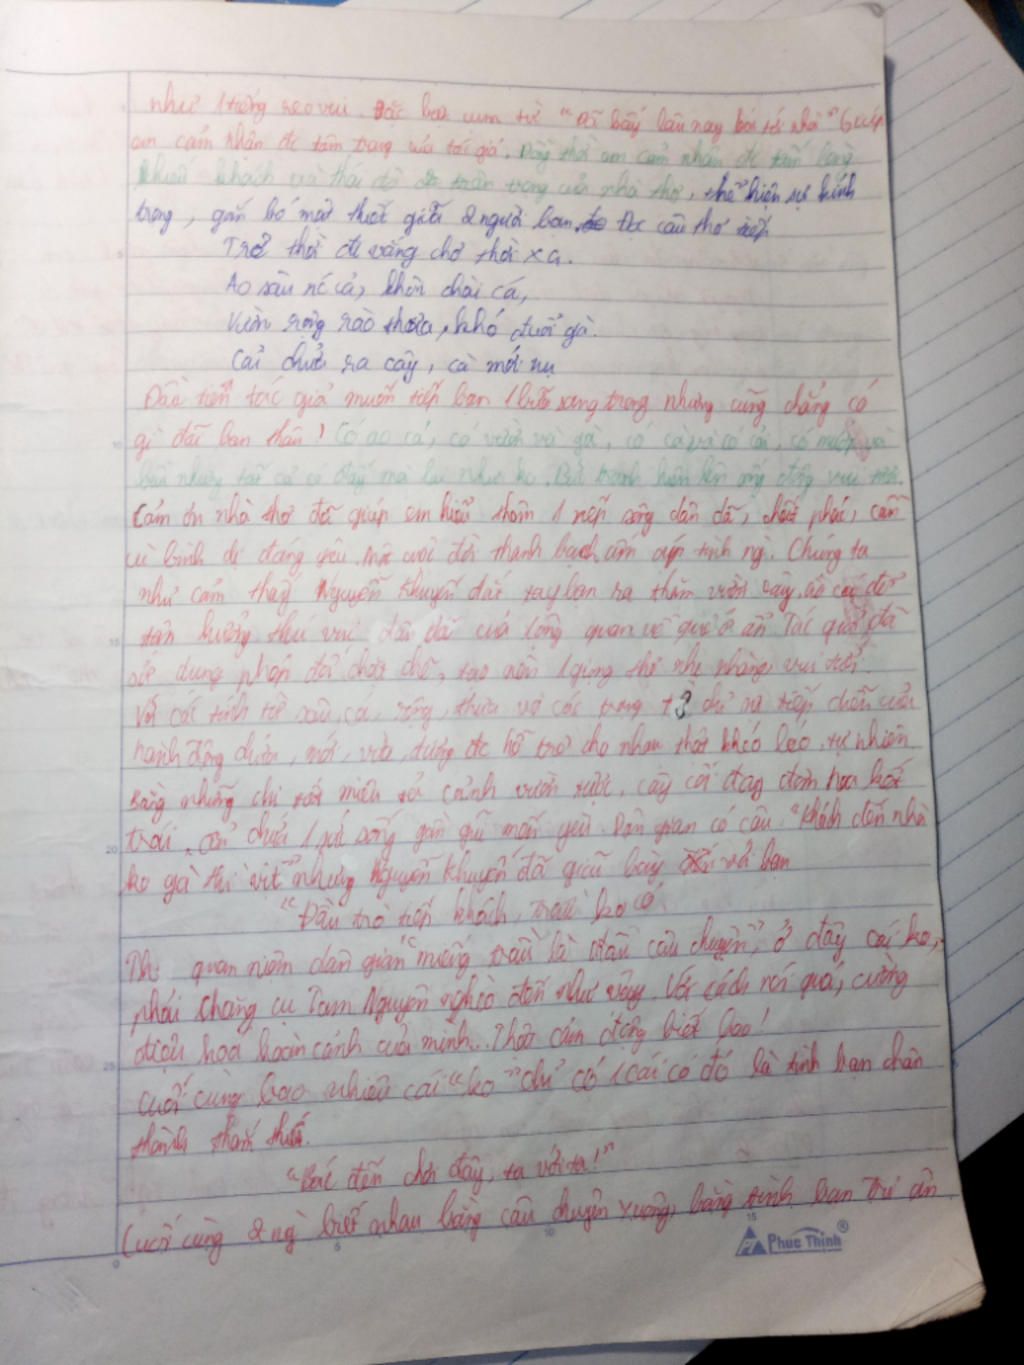 như 1 tiếng reo vui. Đặc biệt cụm từ "Đã bấy lâu nay bác tới nhà" Giúp
em cảm nhận đc tâm trạng của tác giả. Đồng thời em cảm nhận đc tấm lòng
hiếu khách và thái độ trân trọng của nhà thơ, thể hiện sự kính
trọng, gắn bó mật thiết giữa 2 người bạn. Đc câu thơ tiếp
Trẻ thời đi vắng chợ thời xa.
Ao sâu nc cả, khôn chài cá,
Vườn rộng rào thưa, khó đuổi gà.
Cải chửa ra cây, cà mới nụ
Đầu tiên tác giả muốn tiếp bạn 1 bữa sang trọng nhưng cũng chẳng có
gì đãi bạn thân! Có ao cá, có vườn và gà, có cà và có cải, có mướp và
bầu nhưng tất cả có đấy mà lại như ko. Bức tranh hiện lên sống động vui
Cảm ơn nhà thơ đã giúp em hiểu thêm 1 nếp sống dân dã, chất phác, cần
cù bình dị đáng yêu. Một cuộc đời thanh bạch ấm áp tình ng. Chúng ta
như cảm thấy Nguyễn Khuyến dắt tay bạn ra thăm vườn cây, ao cá để
tận hưởng thú vui dân dã của ông quan về quê ở ẩn. Tác giả đã
sử dụng phép đối chặt chẽ, tạo nên 1 giọng thơ nhẹ nhàng, vui tươi.
Với các tính từ sâu, cả, rộng, thưa và các trạng t3 chỉ sự tiếp diễn của
hành động chửa, mới, vừa, đương đc hỗ trợ cho nhau thật khéo léo, tự nhiên
bằng những chi tiết miêu tả cảnh vườn tược, cây cối đang đơm hoa kết
trái, 1 sống gần gũi mến yêu. Dân gian có câu "khách đến nhà
ko gà thì vịt" nhưng Nguyễn Khuyến đã giãi bày với bạn
"Đầu trò tiếp khách, trầu ko có
Th quan niệm dân gian "miếng trầu là đầu câu chuyện", ở đây cái ko,
phải chăng cụ Tam Nguyên nghèo đến như vậy. Với cách nói quá, cường
điệu hoá hoàn cảnh của mình... Thật cảm động biết bao!
Cuối cùng bao nhiêu cái "ko" chỉ có 1 cái có đó là tình bạn chân
thành thắm thiết.
"Bác đến chơi đây, ta với ta!"
Cuối cùng 2 ng biết nhau bằng câu chuyện xuông, bằng tình bạn tri âm
5
10
15
20
25
0
5
10
15
Phuc Thinh®